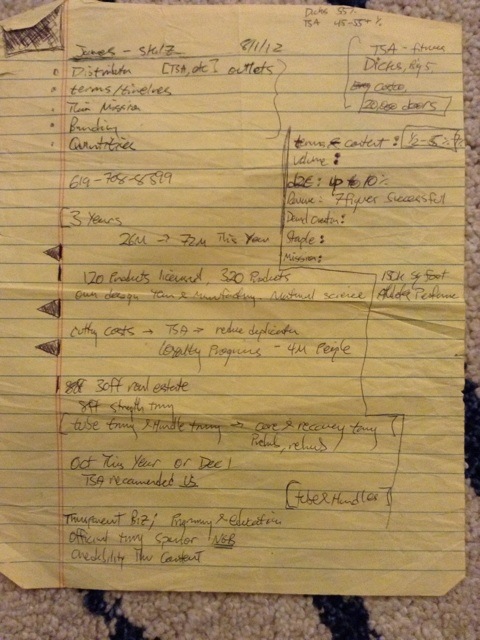 Dicks 55%
TSA 45-55+%
James - 8/1/12
Distributor [TSA, etc] outlets
terms/timelines
Their Mission
Branding
Quantities
TSA - fitness
Dicks, Big 5
Costco,
20,000 doors
terms content :
Volume :
up to 10%
Revenue : 7 figures successful
Demand Creation :
Staple :
Mission :
3 Years
26M → 72M This Year
120 Products licensed, 320 Products
own design team & manufacturing. Natural science
150k sq foot
Athletic Performance
cutting costs → TSA → reduce duplication
Loyalty Programs - 4M People
30ft real estate
8ft strength
tube & Handle → core & recovery
Prehab, rehab
Oct This Year or Dec 1
TSA recommended us
[tube & Handles]
Transparent Biz; Programming & education
Official sponsor NGB
Credibility Thru Content